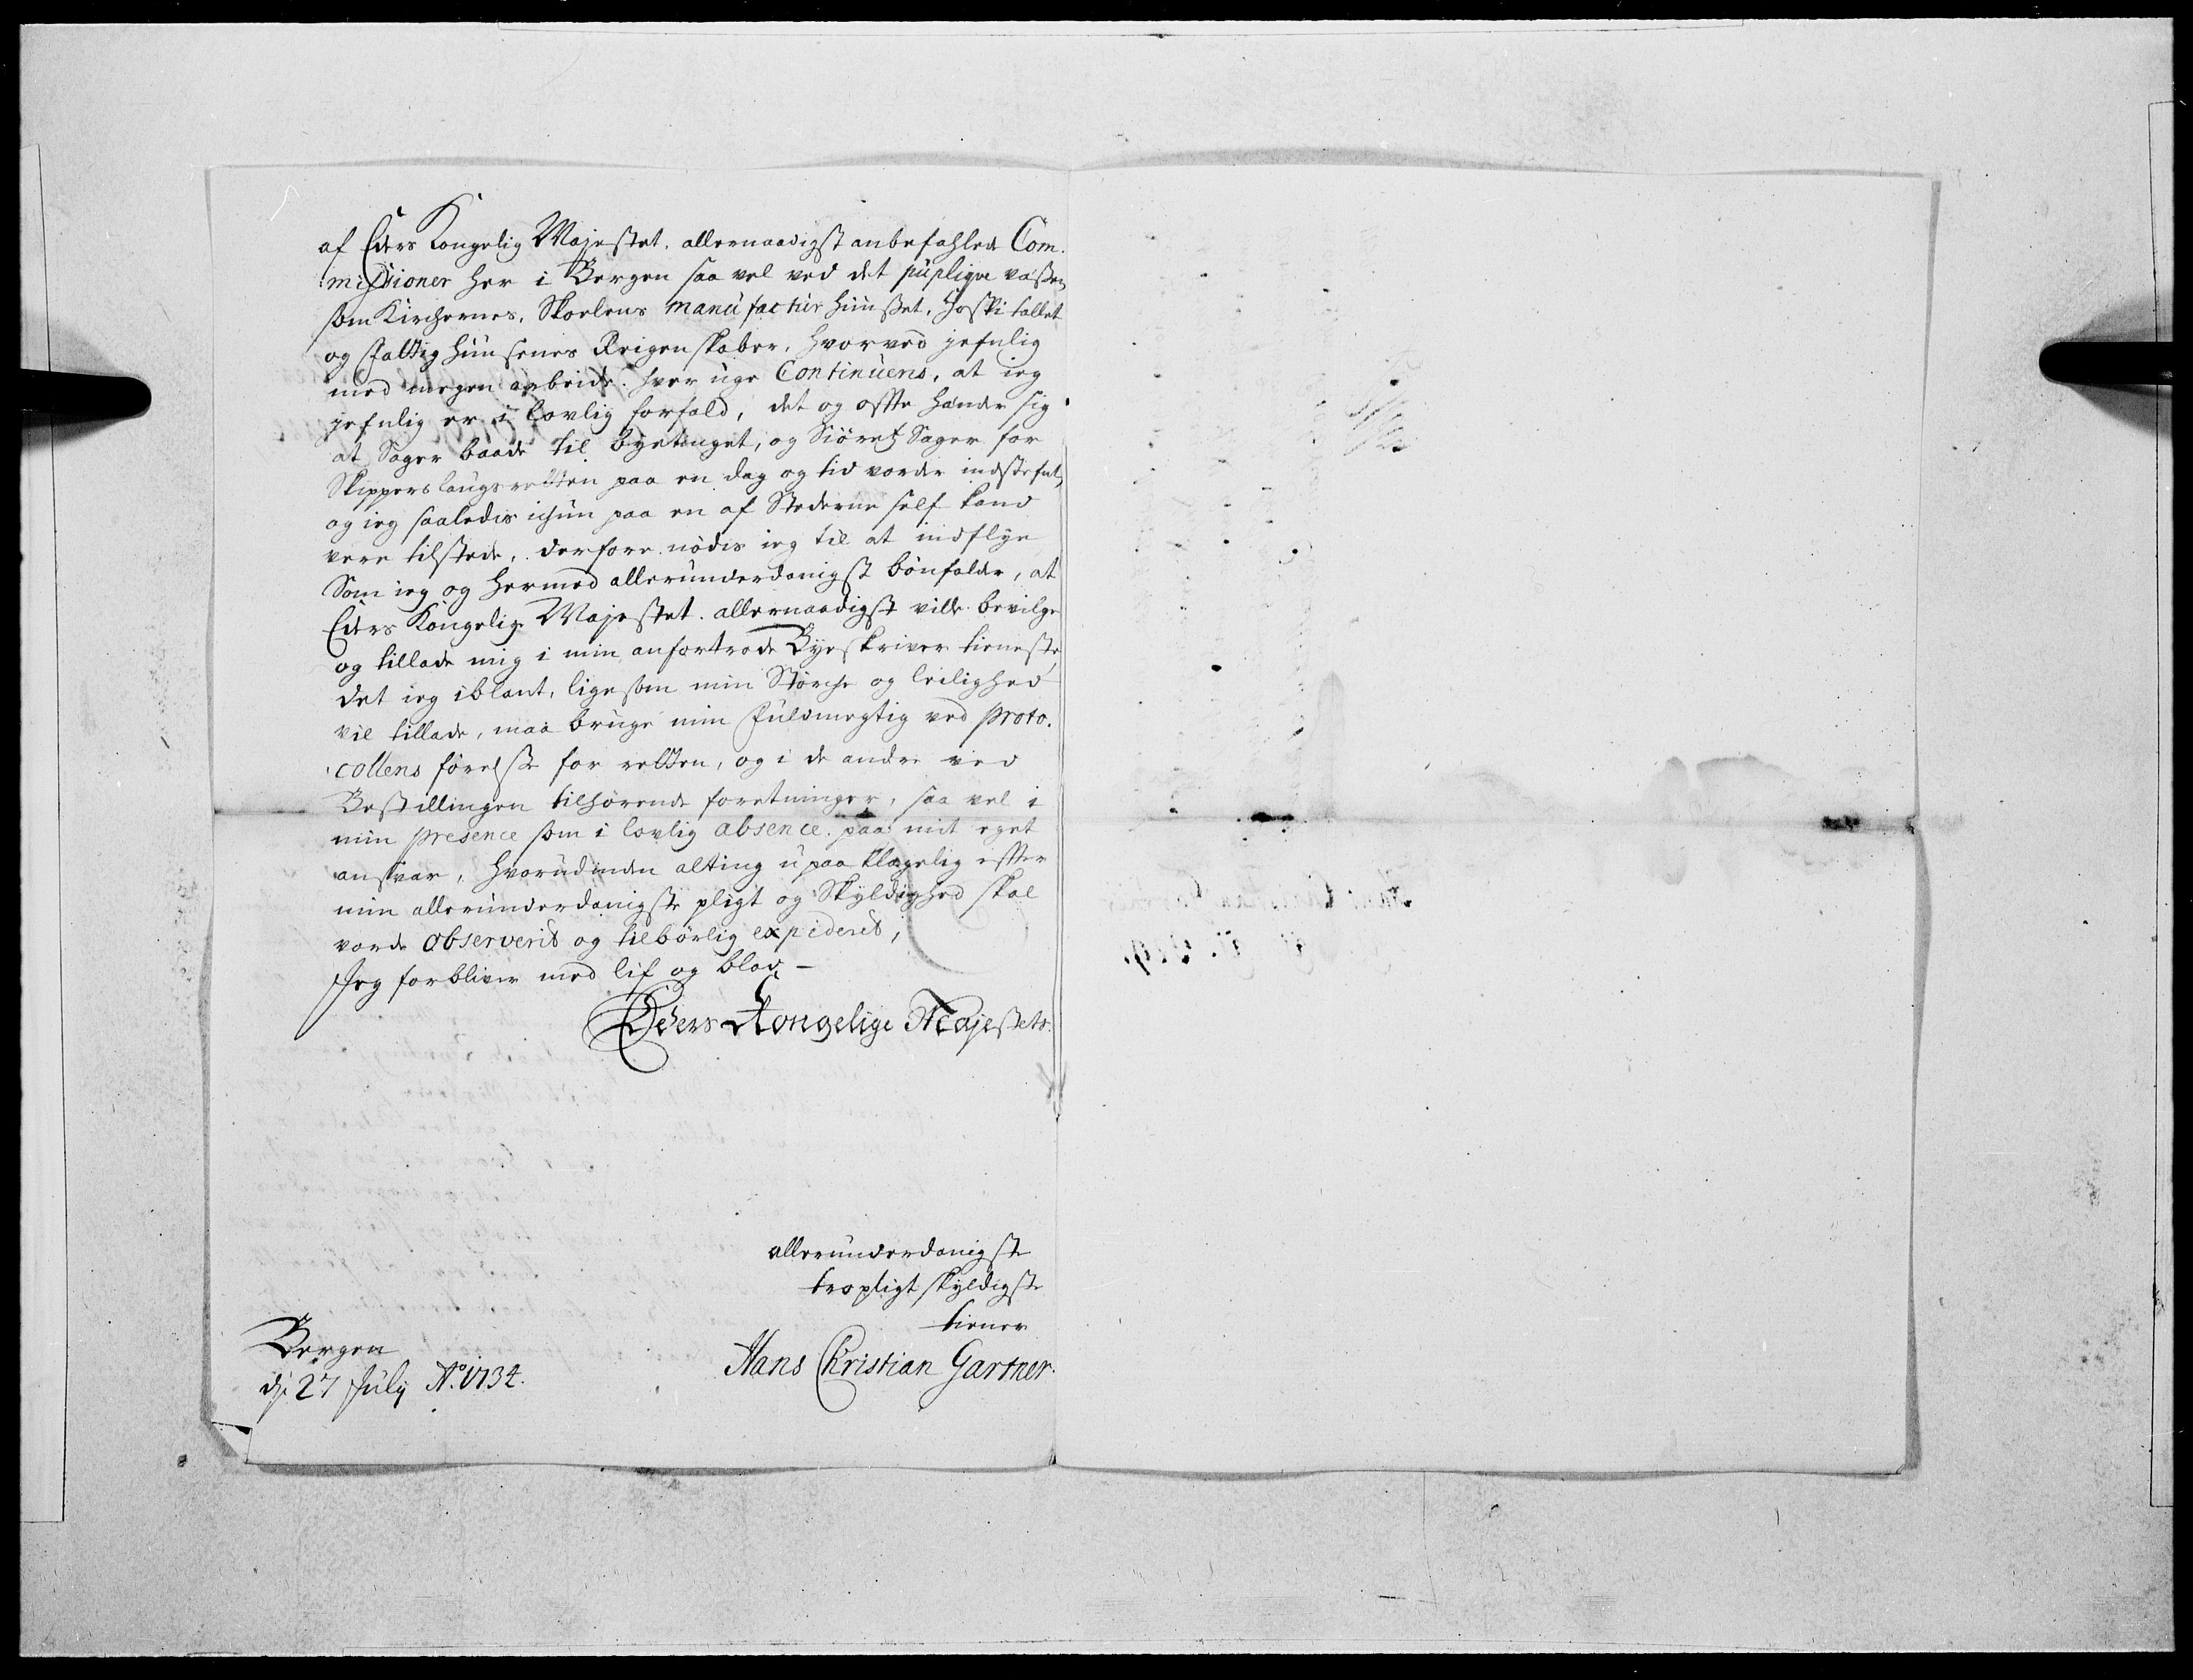 af Eders Kongelig Majestet. allernaadigst anbefahlede Com.
missioner her i Bergen saa vel ved det püplique væßen
som Kirchernes, Skoelens manüfactür hüüset, Hospitallet
og Fattighüüsenes Reigenskaber, hvorved jefnlig
med megen arbeide hver uge Continüeris, at ieg
jefnlig er i lovlig forfald, det og offte hænder sig
at Sager baade til byetinget, og Siörets Sager for
Skipperslaugsretten paa en dag og tid vorder indstefnt,
og ieg saaledis ichün paa en af Stederne self kand
vere tilstede, derfore nödis ieg til at indflye
Som ieg og hermed alleründerdanigst bönfalder, at
Eders Kongelig Majestet. allernaadigst ville bevilge
og tillade mig i min anfortroede Byeskriver tieneste,
det ieg iblant, ligesom min Störche og leilighed
vil tillade, maa brüge min Füldmegtig ved proto.
collens förelse for retten, og i de andre ved
Bestillingen tilhörende foretninger, saa vel i
min presence som i lovlig absence. paa mit eget
ansvar, hvorüdinden alting üpaaklagelig effter
min alleründerdanigste pligt og Skyldighed skal
vorde observerit og tilbörlig expiderit,
Jeg forbliver med lif og blod
Eders Kongelige Majestets.
alleründerdanigste
tropligt skyldigste
tiener
Hans Christian Gartner.
Bergen
d. 27 Jüly Ao. 1734.